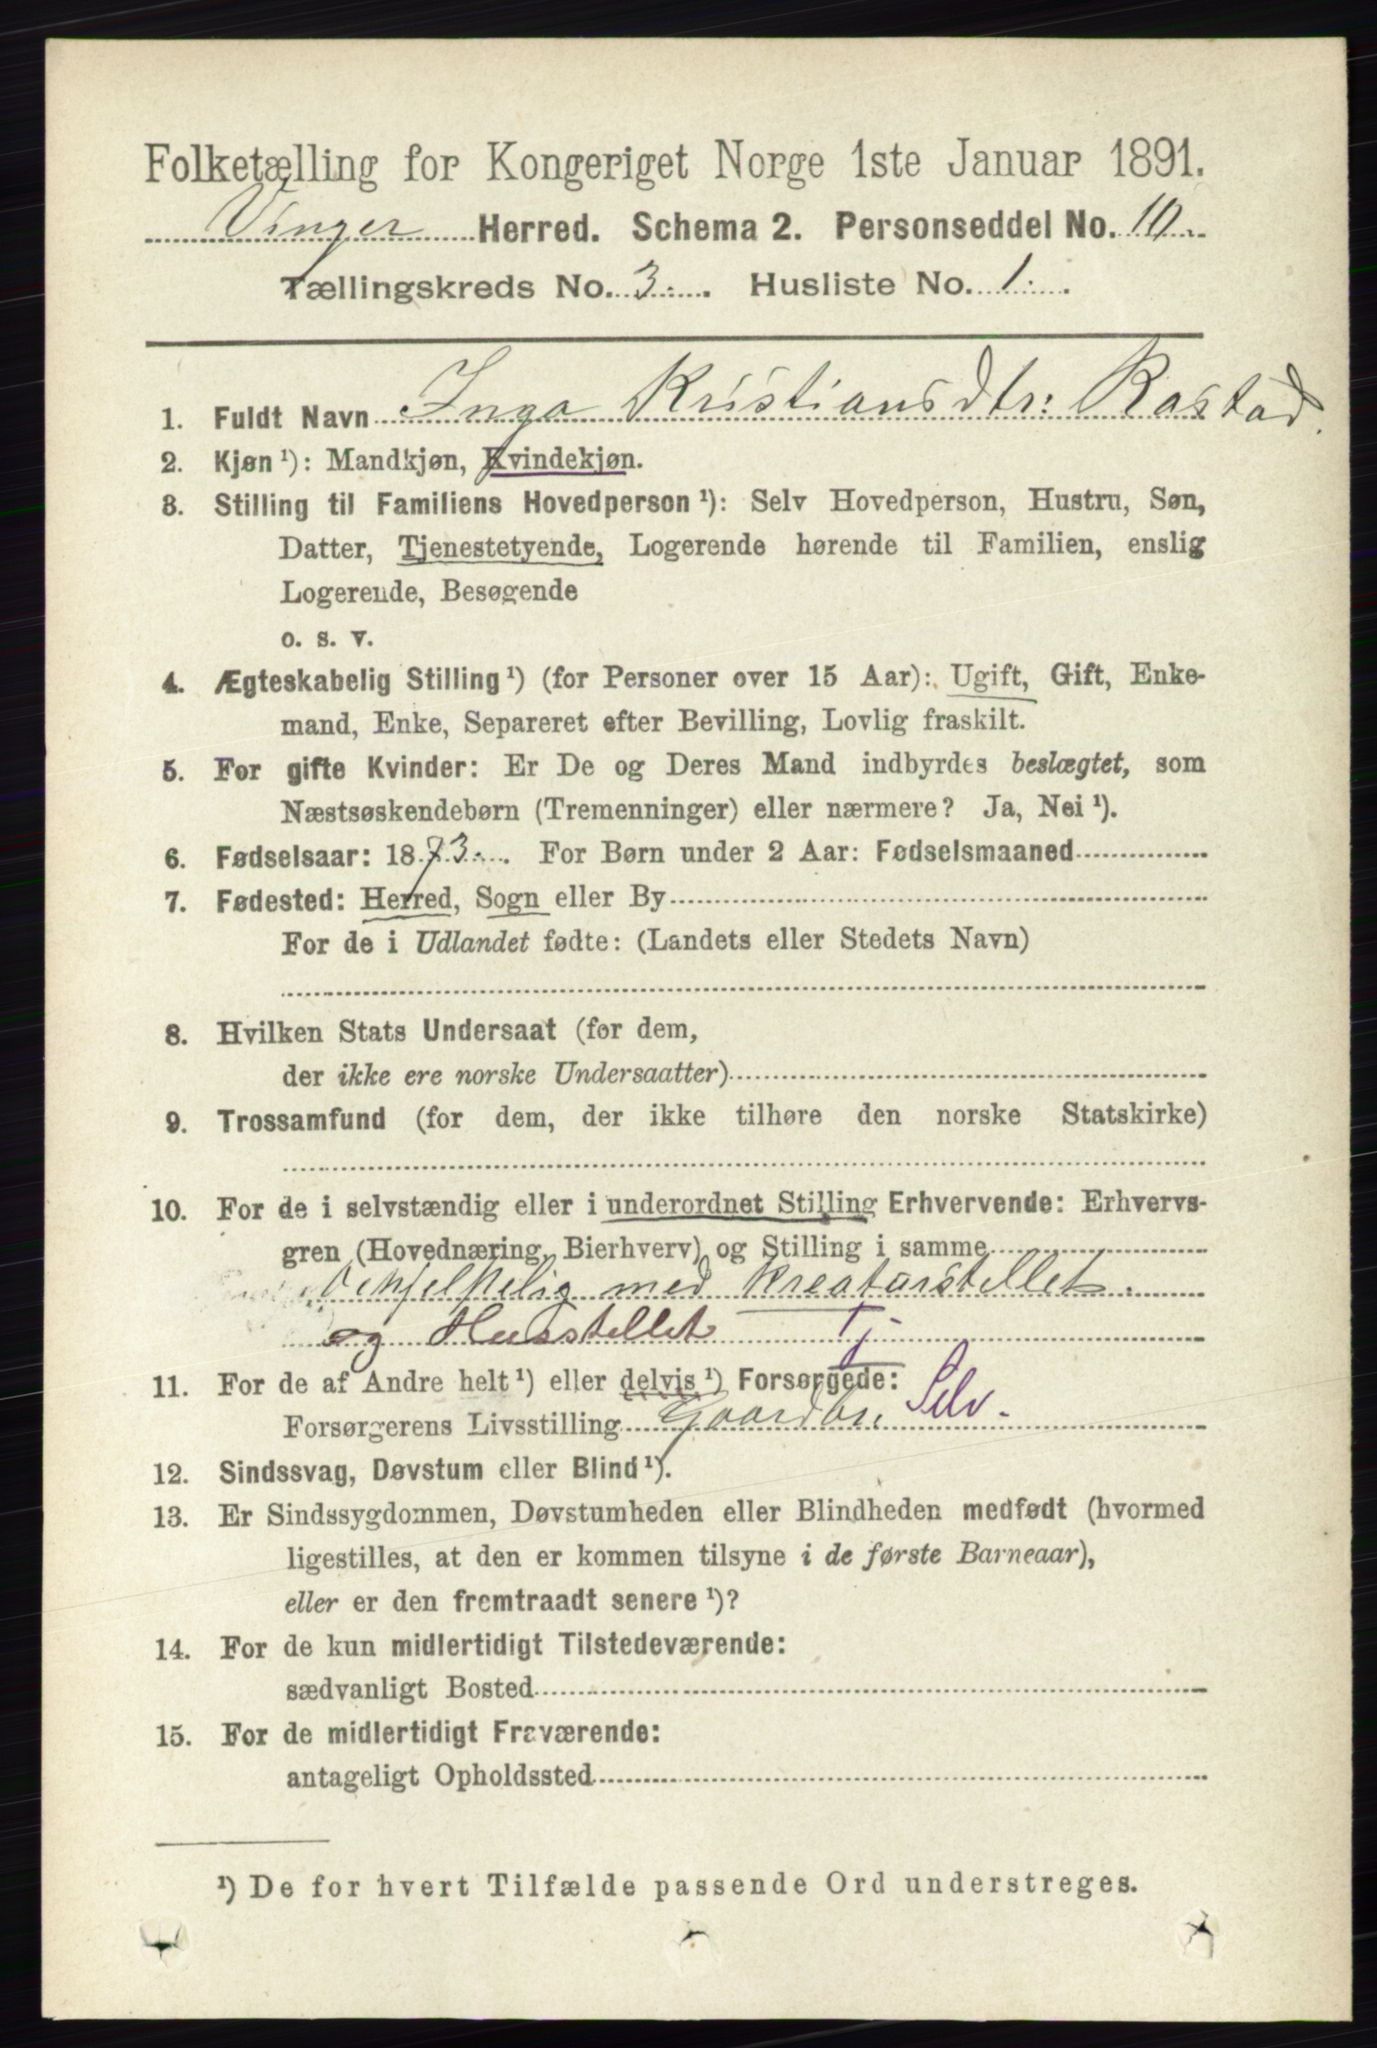 Folketælling for Kongeriget Norge 1ste Januar 1891.
Vinger Herred. Schema 2. Personseddel No. 10
Tællingskreds No. 3. Husliste No. 1.
1. Fuldt Navn Inga Kristiansdtr: Rastad.
2. Kjøn ¹): Mandkjøn, Kvindekjøn.
3. Stilling til Familiens Hovedperson ¹): Selv Hovedperson, Hustru, Søn,
Datter, Tjenestetyende, Logerende hørende til Familien, enslig
Logerende, Besøgende
o. s. v.
4. Ægteskabelig Stilling ¹) (for Personer over 15 Aar): Ugift, Gift, Enke-
mand, Enke, Separeret efter Bevilling, Lovlig fraskilt.
5. For gifte Kvinder: Er De og Deres Mand indbyrdes beslægtet, som
Næstsøskendebørn (Tremenninger) eller nærmere? Ja, Nei ¹).
6. Fødselsaar: 1873. For Børn under 2 Aar: Fødselsmaaned
7. Fødested: Herred, Sogn eller By
For de i Udlandet fødte: (Landets eller Stedets Navn)
8. Hvilken Stats Undersaat (for dem,
der ikke ere norske Undersaatter)
9. Trossamfund (for dem, der ikke tilhøre den norske Statskirke)
10. For de i selvstændig eller i underordnet Stilling Erhvervende: Erhvervs-
gren (Hovednæring, Bierhverv) og Stilling i samme
behjelpelig med Kreaturstellet.
og Husstellet Tj
11. For de af Andre helt ¹) eller delvis ¹) Forsørgede:
Forsørgerens Livsstilling Gaardbr. Selv.
12. Sindssvag, Døvstum eller Blind ¹).
13. Er Sindssygdommen, Døvstumheden eller Blindheden medfødt (hvormed
ligestilles, at den er kommen tilsyne i de første Barneaar),
eller er den fremtraadt senere ¹)?
14. For de kun midlertidigt Tilstedeværende:
sædvanligt Bosted
15. For de midlertidigt Fraværende:
antageligt Opholdssted
¹) De for hvert Tilfælde passende Ord understreges.